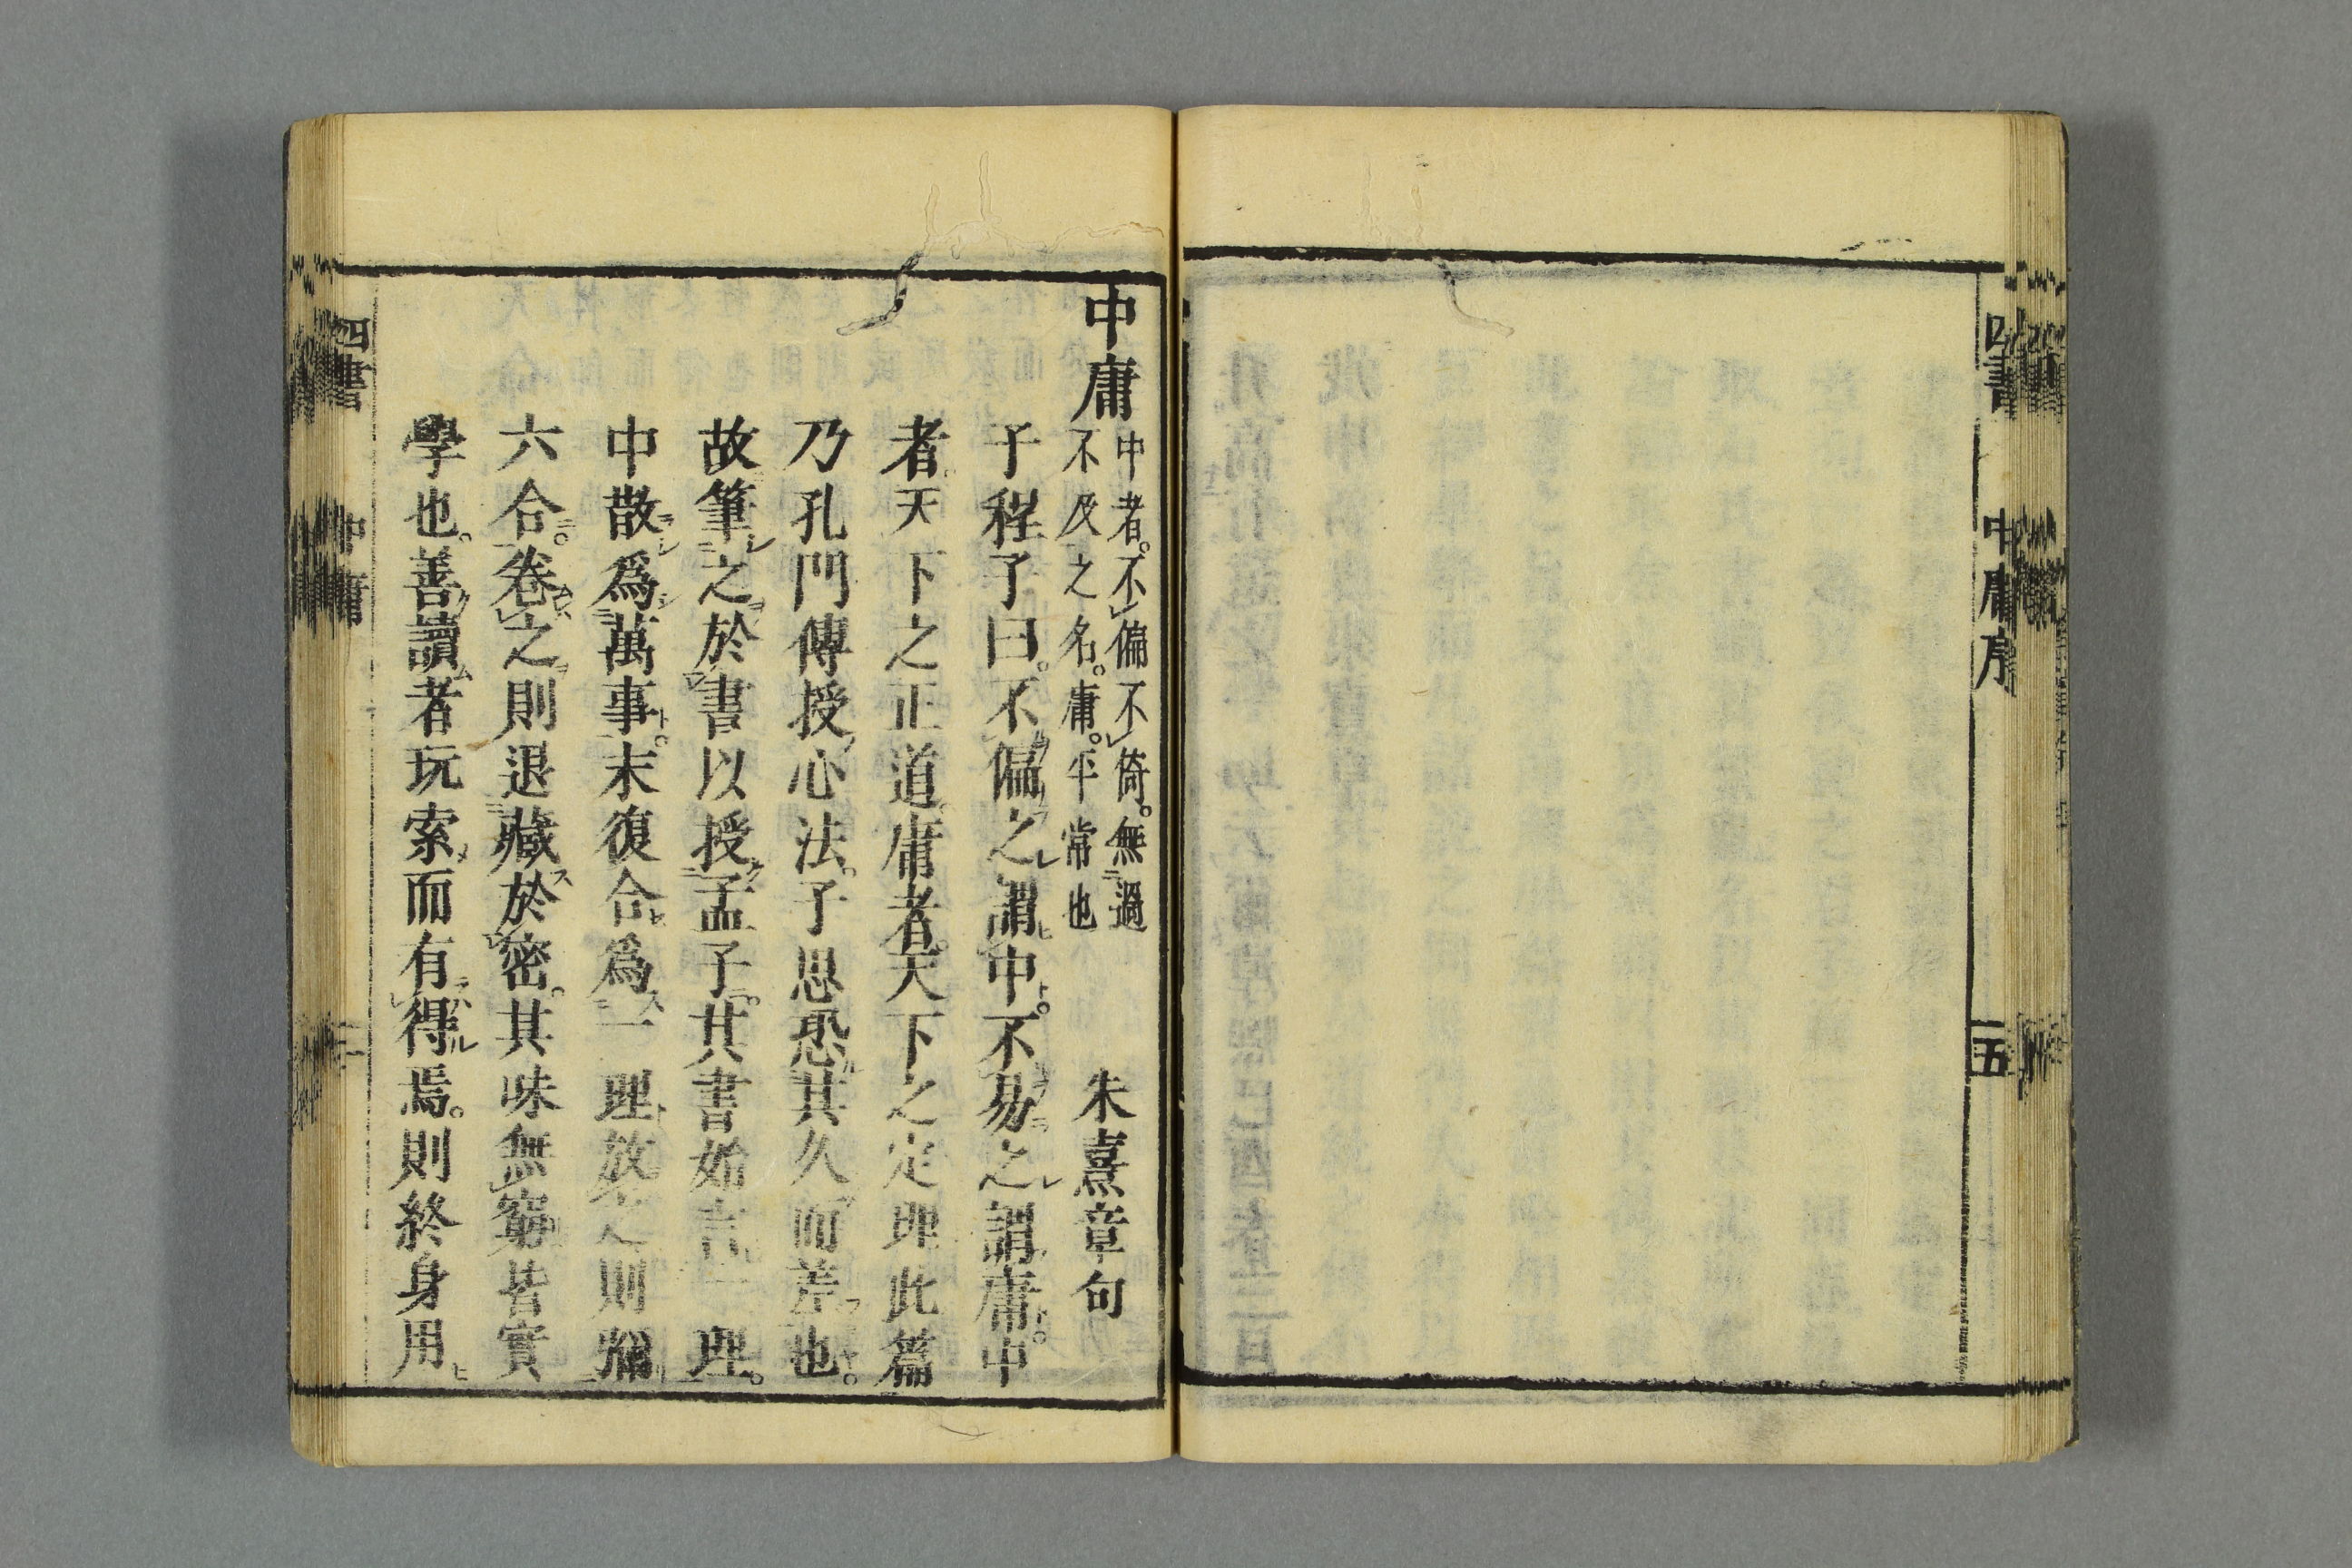 四書
中庸序
五
中庸
中者。不偏不倚。無過
不及之名。庸。平常也
朱熹章句
子程子曰。不偏之謂中。不易之謂庸。中
者。天下之正道。庸者。天下之定理。此篇
乃孔門傳授心法。子思恐其久而差也。
故筆之於書以授孟子。其書始言一理。
中散爲萬事。末復合爲一理。放之則彌
六合。卷之則退藏於密。其味無窮。皆實
學也。善讀者玩索而有得焉。則終身用
四書
中庸